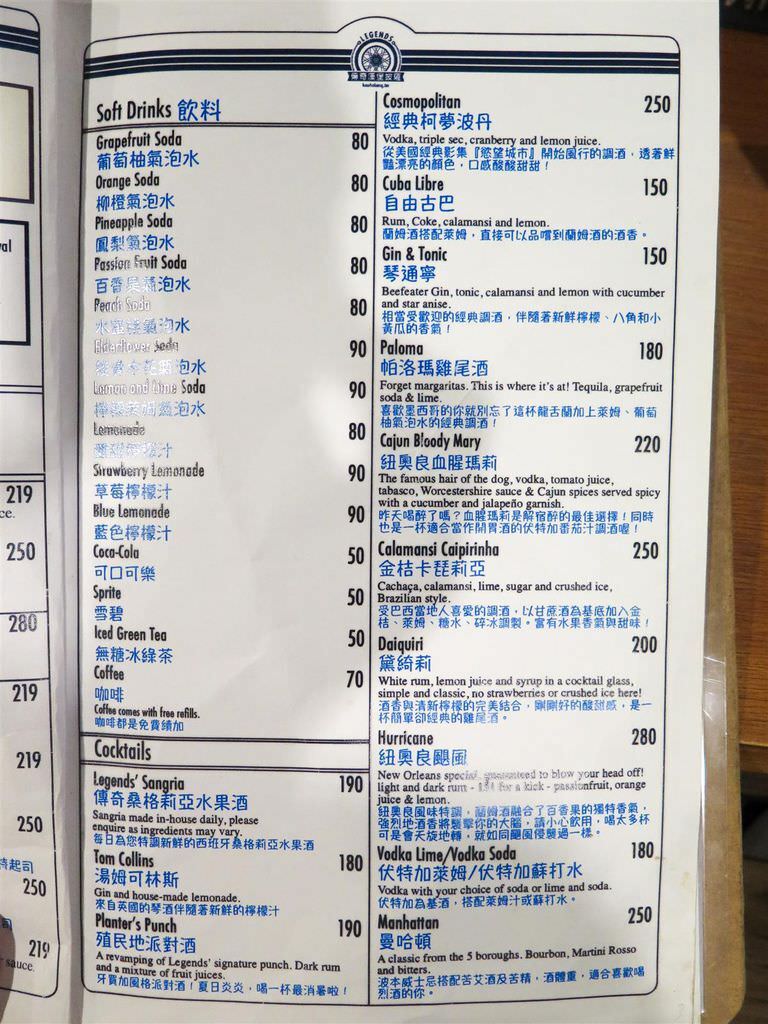 LEGENDS
Soft Drinks 飲料
Grapefruit Soda 80
葡萄柚氣泡水
Orange Soda 80
柳橙氣泡水
Pineapple Soda 80
鳳梨氣泡水
Passion Fruit Soda 80
百香果氣泡水
Peach Soda 80
水蜜桃氣泡水
Elderflower Soda 90
氣泡水
Lemon and Lime Soda 90
檸檬萊姆氣泡水
Lemonade 80
檸檬汁
Strawberry Lemonade 90
草莓檸檬汁
Blue Lemonade 90
藍色檸檬汁
Coca-Cola 50
可口可樂
Sprite 50
雪碧
Iced Green Tea 50
無糖冰綠茶
Coffee 70
咖啡
Coffee comes with free refills.
咖啡都是免費續加
Cocktails
Legends' Sangria 190
傳奇桑格莉亞水果酒
Sangria made in-house daily, please
enquire as ingredients may vary.
每日為您特調新鮮的西班牙桑格莉亞水果酒
Tom Collins 180
湯姆可林斯
Gin and house-made lemonade.
來自英國的琴酒伴隨著新鮮的檸檬汁
Planter's Punch 190
殖民地派對酒
A revamping of Legends' signature punch. Dark rum
and a mixture of fruit juices.
牙買加風格派對酒！夏日炎炎，喝一杯最消暑啦！
Cosmopolitan 250
經典柯夢波丹
Vodka, triple sec, cranberry and lemon juice.
從美國經典影集『慾望城市』開始風行的調酒，透著鮮
豔漂亮的顏色，口感酸酸甜甜！
Cuba Libre 150
自由古巴
Rum, Coke, calamansi and lemon.
蘭姆酒搭配萊姆，直接可以品嚐到蘭姆酒的酒香。
Gin & Tonic 150
琴通寧
Beefeater Gin, tonic, calamansi and lemon with cucumber
and star anise.
相當受歡迎的經典調酒，伴隨著新鮮檸檬、八角和小
黃瓜的香氣！
Paloma 180
帕洛瑪雞尾酒
Forget margaritas. This is where it's at! Tequila, grapefruit
soda & lime.
喜歡墨西哥的你就別忘了這杯龍舌蘭加上萊姆、葡萄
柚氣泡水的經典調酒！
Cajun Bloody Mary 220
紐奧良血腥瑪莉
The famous hair of the dog, vodka, tomato juice,
tabasco, Worcestershire sauce & Cajun spices served spicy
with a cucumber and jalapeño garnish.
昨天喝醉了嗎？血腥瑪莉是解宿醉的最佳選擇！同時
也是一杯適合當作開胃酒的伏特加番茄汁調酒喔！
Calamansi Caipirinha 250
金桔卡琵莉亞
Cachaça, calamansi, lime, sugar and crushed ice,
Brazilian style.
受巴西當地人喜愛的調酒，以甘蔗酒為基底加入金
桔、萊姆、糖水、碎冰調製。富有水果香氣與甜味！
Daiquiri 200
黛綺莉
White rum, lemon juice and syrup in a cocktail glass,
simple and classic, no strawberries or crushed ice here!
酒香與清新檸檬的完美結合，剛剛好的酸甜感，是一
杯簡單卻經典的雞尾酒。
Hurricane 280
紐奧良颶風
New Orleans special, guaranteed to blow your head off!
light and dark rum - 151 for a kick - passionfruit, orange
juice & lemon.
紐奧良風味特調，蘭姆酒融合了百香果的獨特香氣，
強烈地酒香將襲擊你的大腦，請小心飲用，喝太多杯
可是會天旋地轉，就如同颶風侵襲過一樣。
Vodka Lime/Vodka Soda 180
伏特加萊姆/伏特加蘇打水
Vodka with your choice of soda or lime and soda.
伏特加為基酒，搭配萊姆汁或蘇打水。
Manhattan 250
曼哈頓
A classic from the 5 boroughs. Bourbon, Martini Rosso
and bitters.
波本威士忌搭配苦艾酒及苦精，酒體重，適合喜歡喝
烈酒的你。
219
250
280
219
219
250
250
219
sauce.